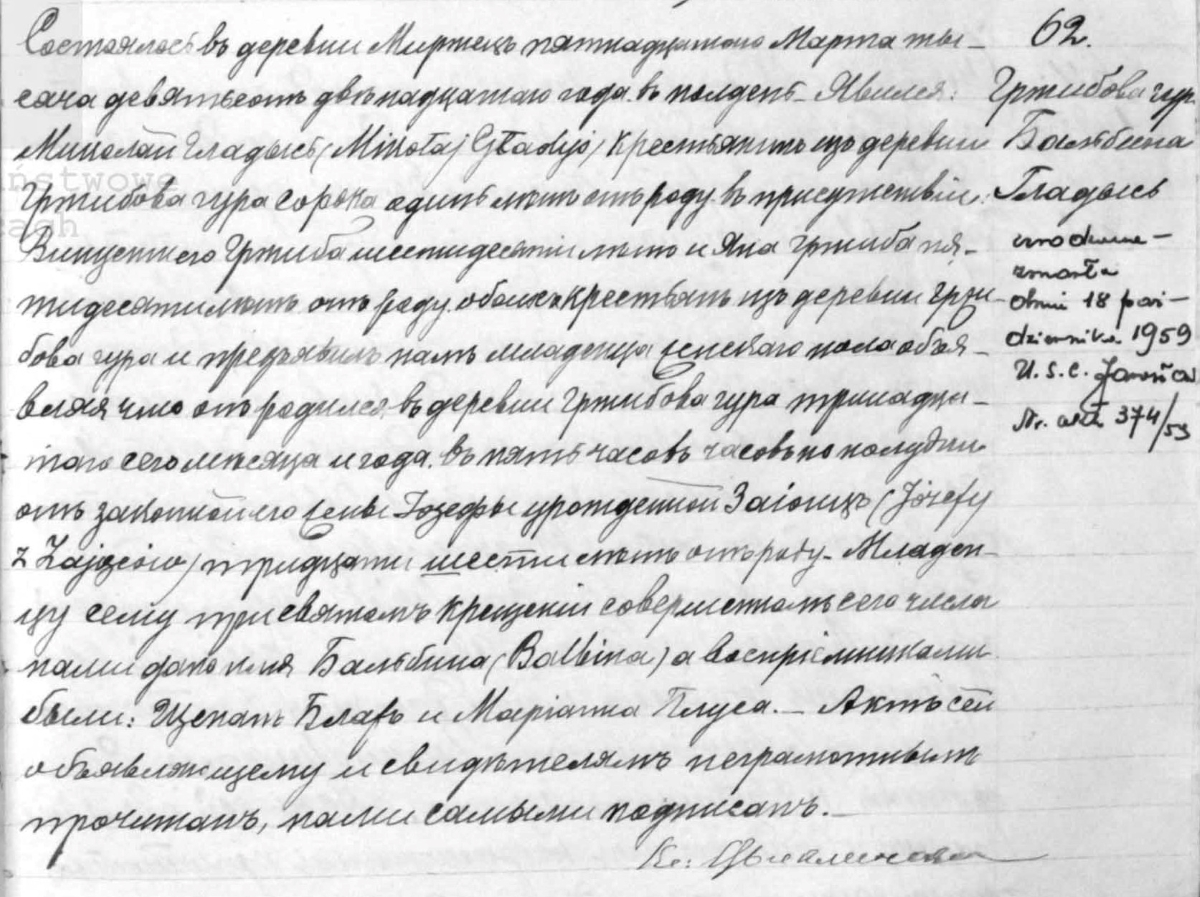 Состоялось въ деревни Миржецъ пятнадцатого Марта ты-
сяча девятьсотъ двѣнадцатаго года въ полдень. Явился:
Миколай Гладысь (Mikołaj Gładys) крестьянинъ изъ деревни
Гржибова гура сорока одинъ лѣтъ отъ роду въ присутствіи
Винцентего Гржиба шестидесяти лѣтъ и Яна Гржиба пя-
тидесяти лѣтъ отъ роду обоихъ крестьянъ изъ деревни Гржи-
бова гура и предъявилъ намъ младенца женскаго пола объя-
вляя что онъ родился въ деревни Гржибова гура тринадца-
того сего мѣсяца и года въ пять часовъ часовъ по полудни
отъ законной его жены Іозефы урожденной Заіонцъ (Józefy
z Zajęców) тридцати шести лѣтъ отъ роду. Младен-
цу сему при святомъ крещеніи совершенномъ сего числа
нами дано имя Бальбина (Balbina) а воспріемниками
были: Щепанъ Блажъ и Маріанна Плуса. Актъ сей
объявляющему и свидѣтелямъ неграмотнымъ
прочитанъ, нами самыми подписанъ.
Кс:
62.
Гржибова гура
Бальбина
Гладысь
zmarła
dnia 18 paź-
dziernika 1959
U.S.C.
Nr. aktu 374/59
ństwowe